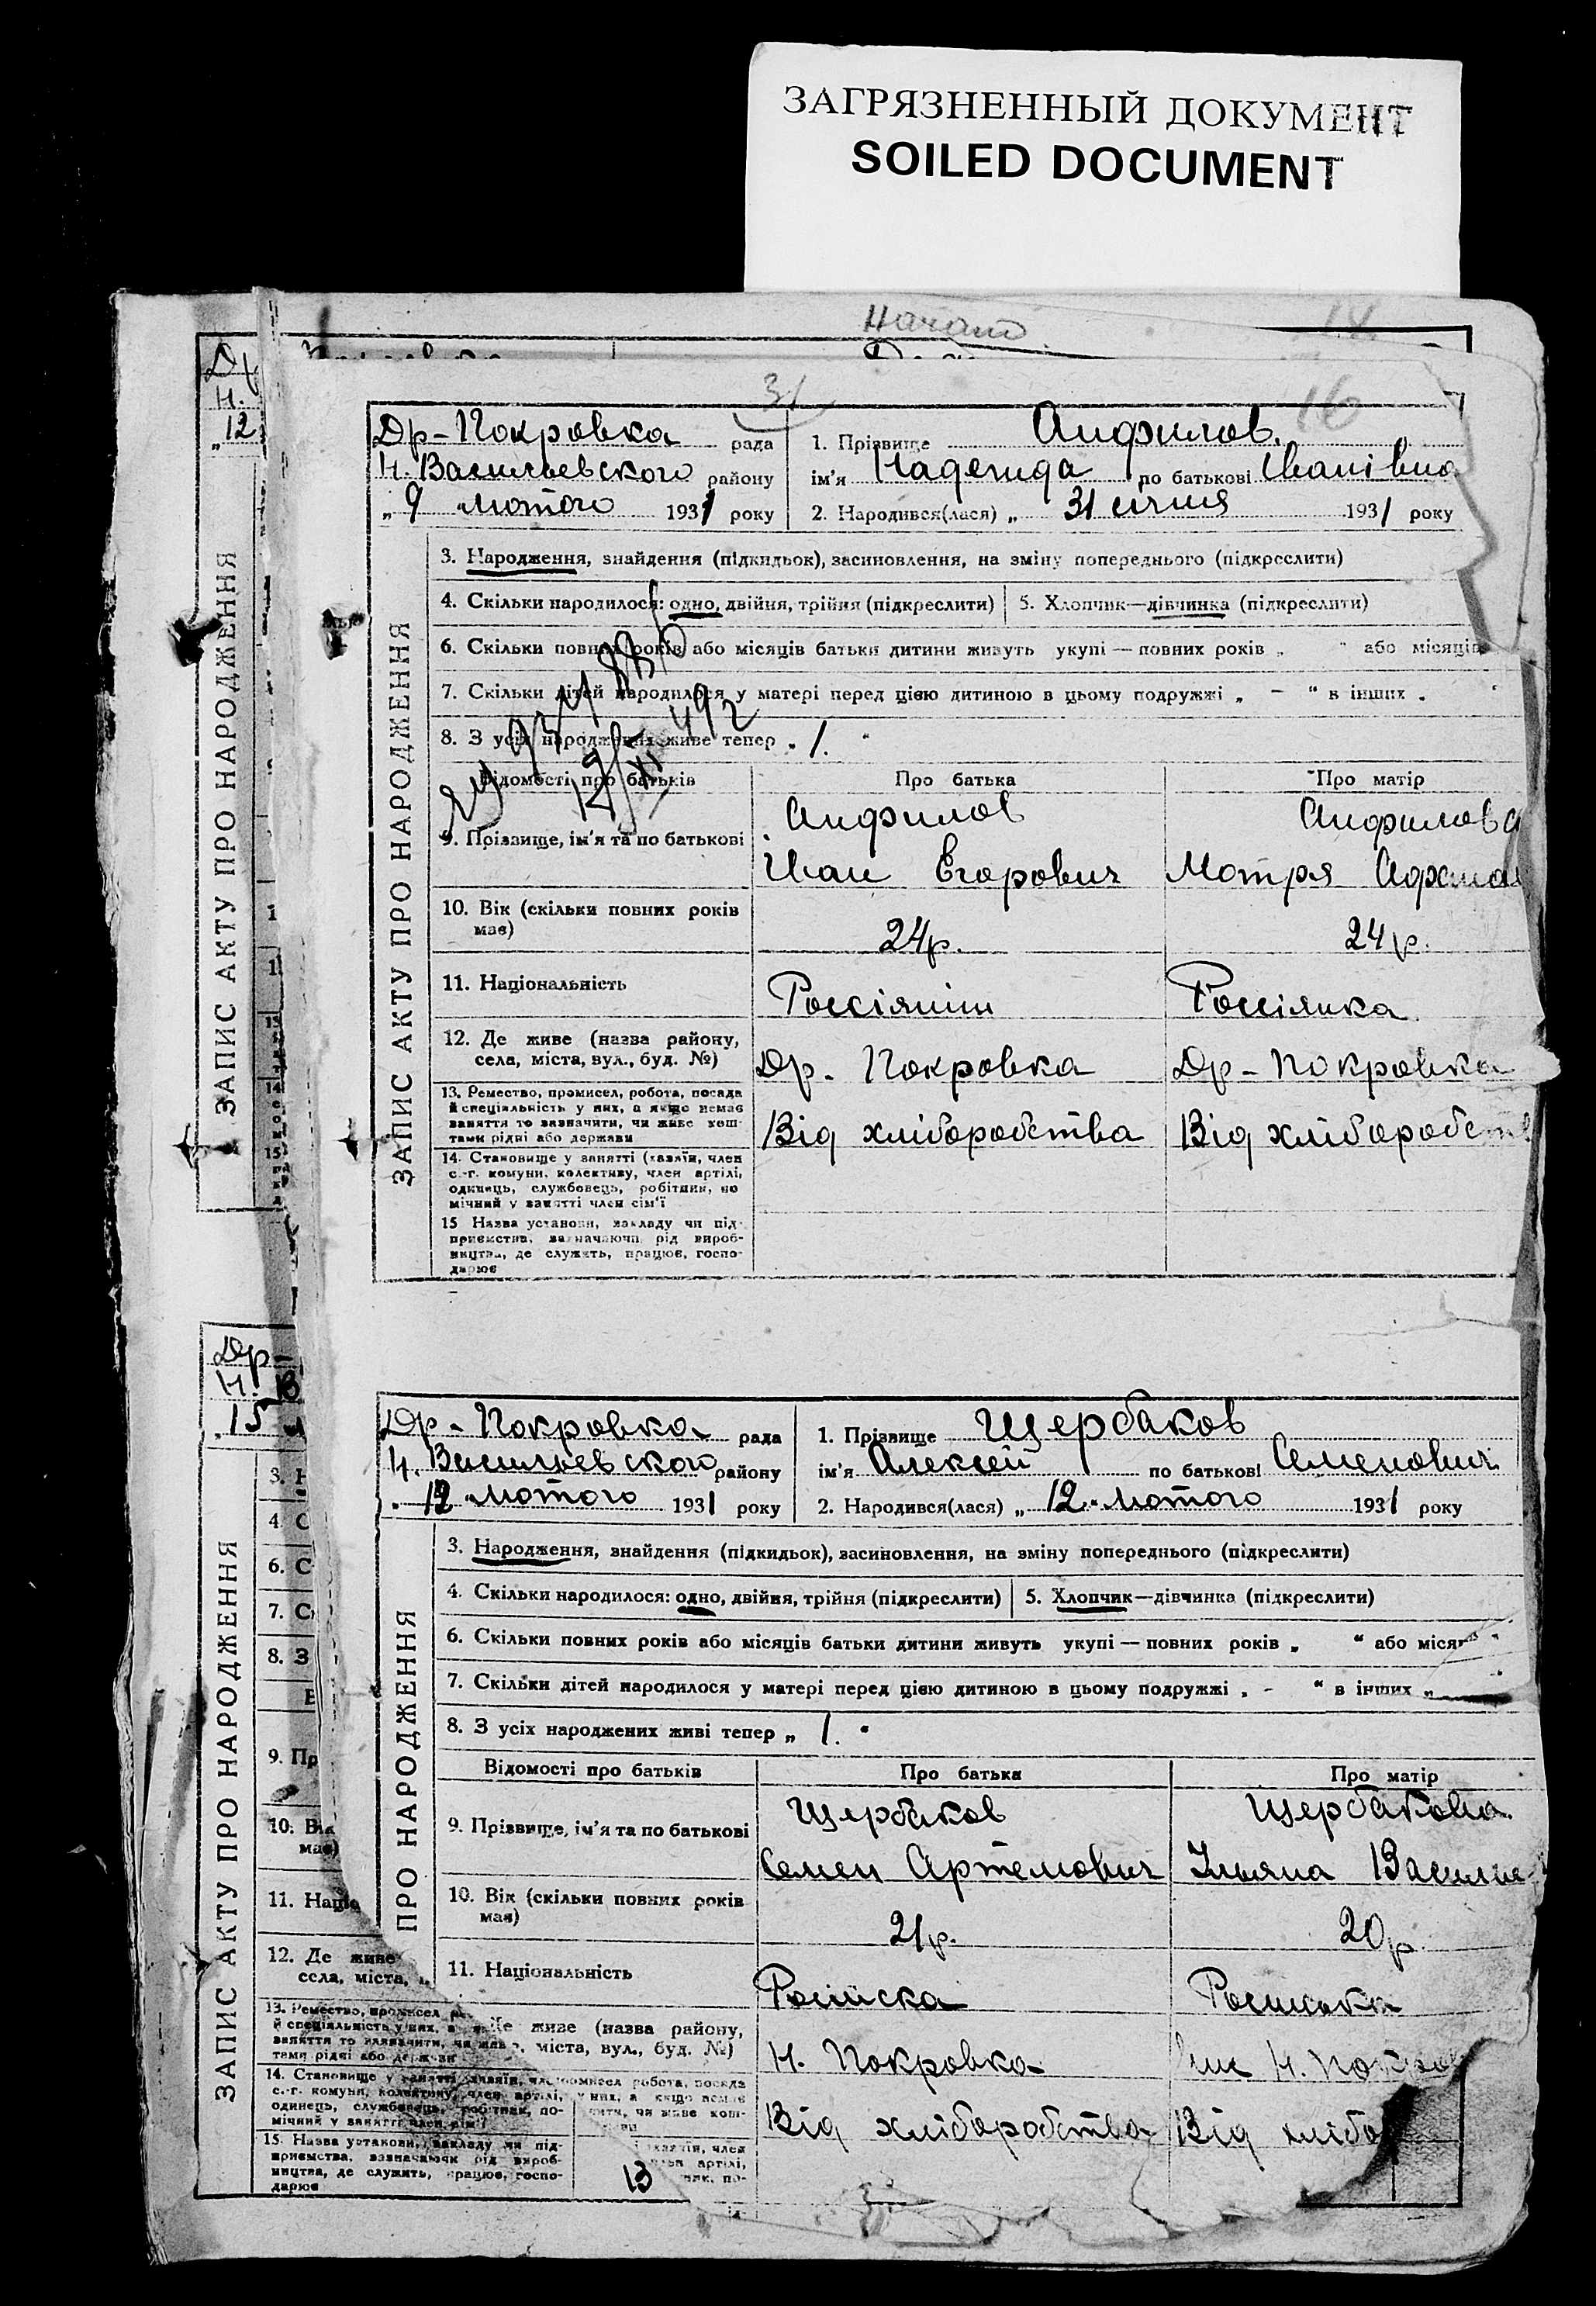 ЗАГРЯЗНЕННЫЙ ДОКУМЕНТ
SOILED DOCUMENT
Начато
31
16
Др-Покровка рада
Н. Васильевского району
„ 9 лютого 1931 року
1. Прізвище Анфилов.
ім'я Надежда по батькові Іванівна
2. Народився(лася) „ 31 січня 1931 року
ЗАПИС АКТУ ПРО НАРОДЖЕННЯ
3. Народження, знайдення (підкидьок), засиновлення, на зміну попереднього (підкреслити)
4. Скільки народилося: одно, двійня, трійня (підкреслити) 5. Хлопчик—дівчинка (підкреслити)
6. Скільки повних років або місяців батьки дитини живуть укупі — повних років „ “ або місяців
7. Скільки дітей народилося у матері перед цією дитиною в цьому подружжі „ - “ в інших „
8. З усіх народжених живе тепер „ 1. “
Відомості про батьків Про батька Про матір
9. Прізвище, ім'я та по батькові
Анфилов Анфилова
Иван Егорович Мотря
10. Вік (скільки повних років має)
24р. 24р.
11. Національність Россіянін Россіянка
12. Де живе (назва району,
села, міста, вул., буд. №)
Др. Покровка Др-Покровка
13. Ремество, промисел, робота, посада
й спеціальність у них, а якщо немає
заняття то зазначити, чи живе кош-
тами рідні або держави
Від хліборобства Від хліборобств
14. Становище у занятті (хазяїн, член
с.-г. комуни, колективу, член артілі,
одинець, службовець, робітник, по
мічний у занятті член сім'ї
15 Назва установи, закладу чи під-
приємства, зазначаючи рід вироб-
ництва, де служить, працює, госпо-
дарює
Др-Покровка рада
Н. Васильевского району
„ 12 лютого 1931 року
1. Прізвище Щербаков
ім'я Алексей по батькові Семенович
2. Народився(лася) „ 12 лютого 1931 року
ПРО НАРОДЖЕННЯ
3. Народження, знайдення (підкидьок), засиновлення, на зміну попереднього (підкреслити)
4. Скільки народилося: одно, двійня, трійня (підкреслити) 5. Хлопчик—дівчинка (підкреслити)
6. Скільки повних років або місяців батьки дитини живуть укупі — повних років „ “ або міся
7. Скільки дітей народилося у матері перед цією дитиною в цьому подружжі „ - “ в інших „
8. З усіх народжених живі тепер „ 1. “
Відомості про батьків Про батька Про матір
9. Прізвище, ім'я та по батькові
Щербаков Щербакова
Семен Артемович Ульяна Василье
10. Вік (скільки повних років
має)
21р. 20р.
11. Національність Російска Російська
живе (назва району,
міста, вул., буд. №)
Н. Покровка Н. Покров
Від хліборобства Від хлібо
ЗАПИС АКТУ ПРО НАРОДЖЕННЯ
Др
Н.
„12
ЗАПИС АКТУ ПРО НАРОДЖЕННЯ
Др-
Н. В
„15
3. Н
4. С
6. С
7. С
8. З
9. Пр
10. Вік
має)
11. Націо
12. Де живе
села, міста,
13. Ремество, промисел
й спеціальність у них, а
заняття то зазначити, чи жив
тами рідні або держави
14. Становище у занятті (хазяїн, чле
с.-г. комуни, колективу, член артілі,
одинець, службовець, робітник, по-
мічний у занятті член сім'ї
15. Назва установи, закладу чи під-
приємства, зазначаючи рід вироб-
ництва, де служить, працює, госпо-
дарює
13